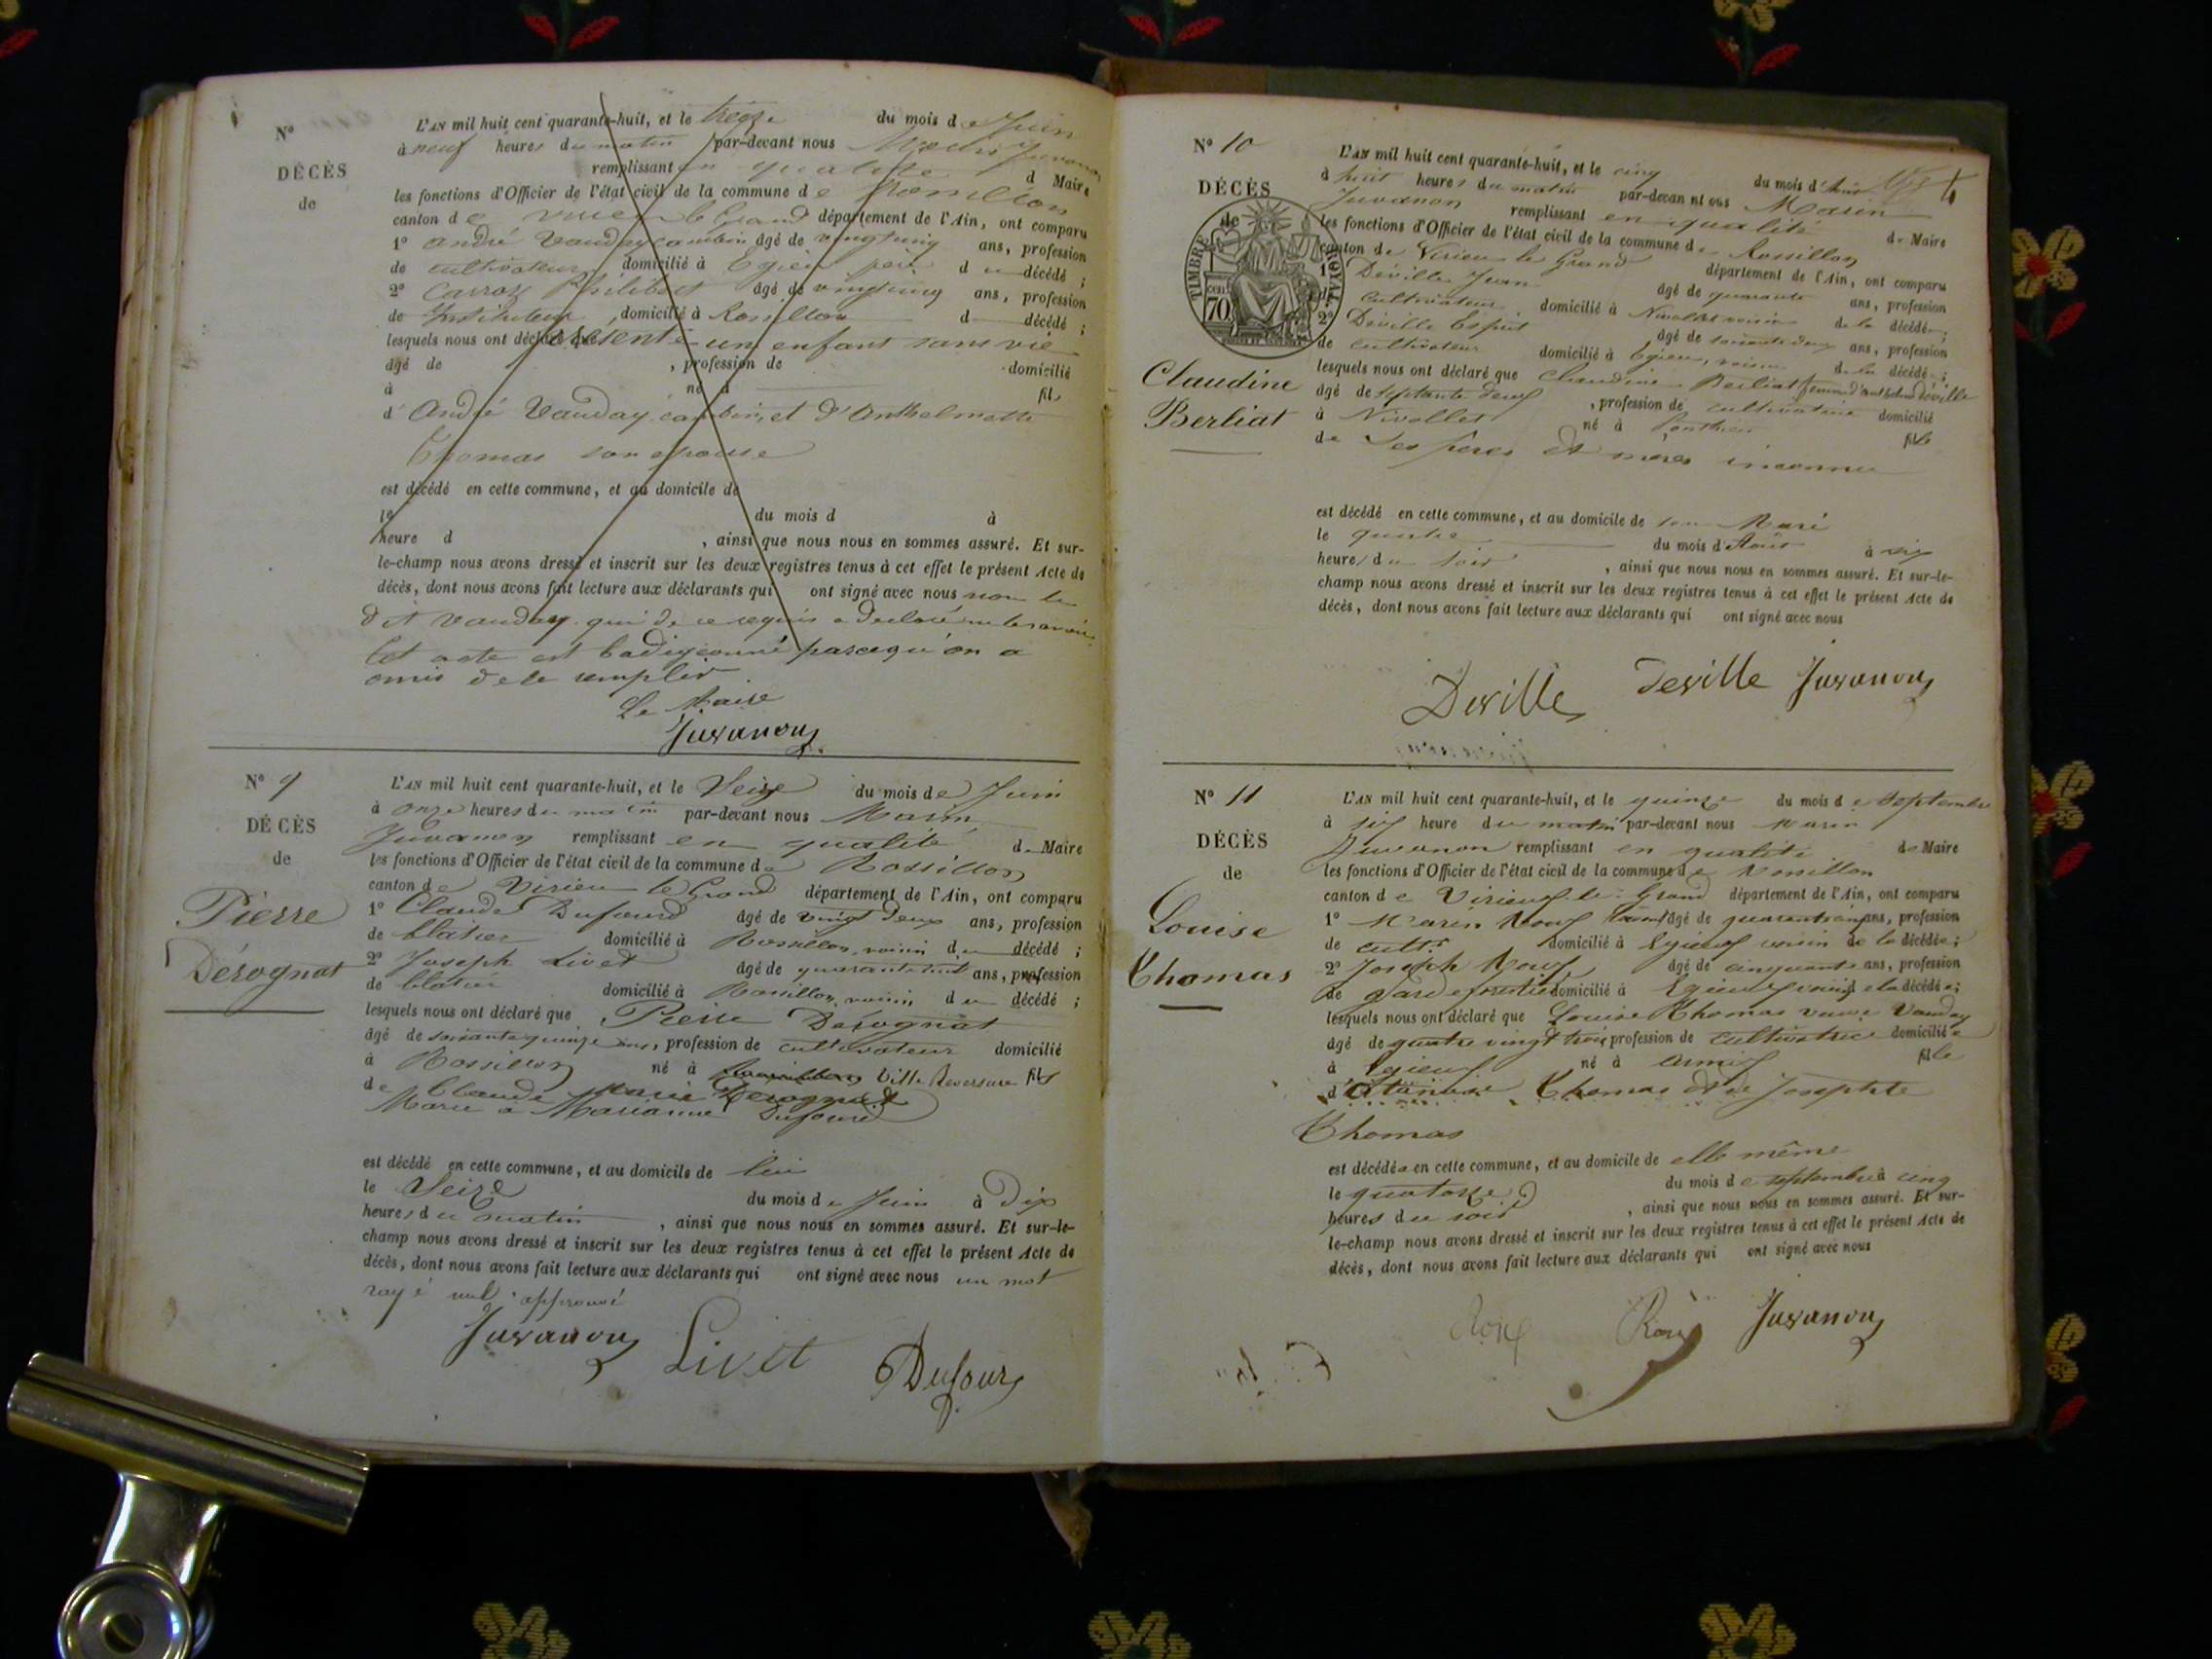 N°
DÉCÈS
de
L'AN mil huit cent quarante-huit, et le treize du mois de Juin
à neuf heures du matin par-devant nous Juvanon
remplissant en qualité d Maire
les fonctions d'Officier de l'état civil de la commune de Rossillon
canton de Virieu le Grand département de l'Ain, ont comparu
1° andré Vauday cambin âgé de vingt cinq ans, profession
de cultivateur, domicilié à Egieu père du décédé ;
2° Carron Philibert âgé de vingt cinq ans, profession
de Instituteur, domicilié à Rossillon d décédé ;
lesquels nous ont présenté un enfant sans vie
âgé de , profession de domicilié
à né à fils
d' André Vauday cambin, et d'Anthelmette
Thomas son épouse
est décédé en cette commune, et au domicile de
le du mois d à
heure d , ainsi que nous nous en sommes assuré. Et sur-
le-champ nous avons dressé et inscrit sur les deux registres tenus à cet effet le présent Acte de
décès, dont nous avons fait lecture aux déclarants qui ont signé avec nous non le
dit Vauday qui de ce requis a declaré ne le savoir
Cet acte est badigeonné parcequ'on a
omis de le remplir
Le Maire
Juvanon
N° 9
DÉCÈS
de
Pierre
Dérognat
L'AN mil huit cent quarante-huit, et le Seize du mois de Juin
à onze heures du matin par-devant nous Marin
Juvanon remplissant en qualité de Maire
les fonctions d'Officier de l'état civil de la commune de Rossillon
canton de Virieu le Grand département de l'Ain, ont comparu
1° Claude Dufourd âgé de vingt deux ans, profession
de blatier domicilié à Rossillon, voisin du décédé ;
2° Joseph Livet âgé de quarante huit ans, profession
de blatier domicilié à Rossillon, voisin du décédé ;
lesquels nous ont déclaré que Pierre Dérognat
âgé de soixante quinze ans, profession de cultivateur domicilié
à Rossillon né à Ville Reversure fils
de Claude Marie Derognat
Marie a Marianne Dufourd
est décédé en cette commune, et au domicile de lui
le Seize du mois de Juin à Dix
heures du matin , ainsi que nous nous en sommes assuré. Et sur-le-
champ nous avons dressé et inscrit sur les deux registres tenus à cet effet le présent Acte de
décès, dont nous avons fait lecture aux déclarants qui ont signé avec nous un mot
rayé nul approuvé
Juvanon Livet Dufour
N° 10
DÉCÈS
de
TIMBRE ROYAL
70 cen
Claudine
Berliat
L'AN mil huit cent quarante-huit, et le cinq du mois d'Août
à huit heures du matin par-devant nous Marin
Juvanon remplissant en qualité de Maire
les fonctions d'Officier de l'état civil de la commune de Rossillon
canton de Virieu le Grand département de l'Ain, ont comparu
1° Déville Jean âgé de quarante ans, profession
Cultivateur domicilié à Nivollet voisin de la décédée ;
2° Déville Esprit âgé de soixante deux ans, profession
de cultivateur domicilié à Egieu, voisin de la décédée ;
lesquels nous ont déclaré que Claudine Berliat femme d'anthelme Déville
âgé de septante deux , profession de cultivatrice domicilié
à Nivollet né à Ponthieu fille
de Les peres et meres inconnu
est décédé en cette commune, et au domicile de son Mari
le quatre du mois d'Août à six
heures du soir , ainsi que nous nous en sommes assuré. Et sur-le-
champ nous avons dressé et inscrit sur les deux registres tenus à cet effet le présent Acte de
décès, dont nous avons fait lecture aux déclarants qui ont signé avec nous
Deville Deville Juvanon
N° 11
DÉCÈS
de
Louise
Thomas
L'AN mil huit cent quarante-huit, et le quinze du mois de Septembre
à six heure du matin par-devant nous Marin
Juvanon remplissant en qualité de Maire
les fonctions d'Officier de l'état civil de la commune de Rossillon
canton de Virieux le Grand département de l'Ain, ont comparu
1° Marin Roux âgé de quarante ans, profession
de cultr domicilié à Egieux voisin de la décédée ;
2° Joseph Roux âgé de cinquante ans, profession
de garde forestier domicilié à Egieux voisin de la décédée ;
lesquels nous ont déclaré que Louise Thomas veuve Vauday
âgé de quatre vingt trois profession de cultivatrice domicilié
à Egieux né à Armix fille
d' Thomas et de Josephte
Thomas
est décédée en cette commune, et au domicile de elle même
le quatorze du mois de septembre à cinq
heures du soir , ainsi que nous nous en sommes assuré. Et sur-
le-champ nous avons dressé et inscrit sur les deux registres tenus à cet effet le présent Acte de
décès, dont nous avons fait lecture aux déclarants qui ont signé avec nous
Roux Roux Juvanon